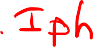 . Iph